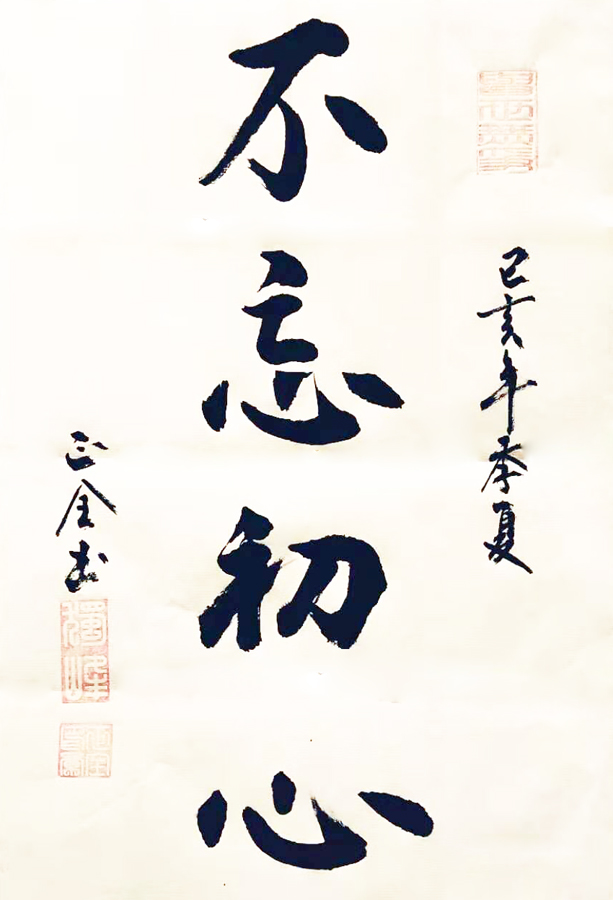 己亥年季夏
不忘初心
正全书
獨峰